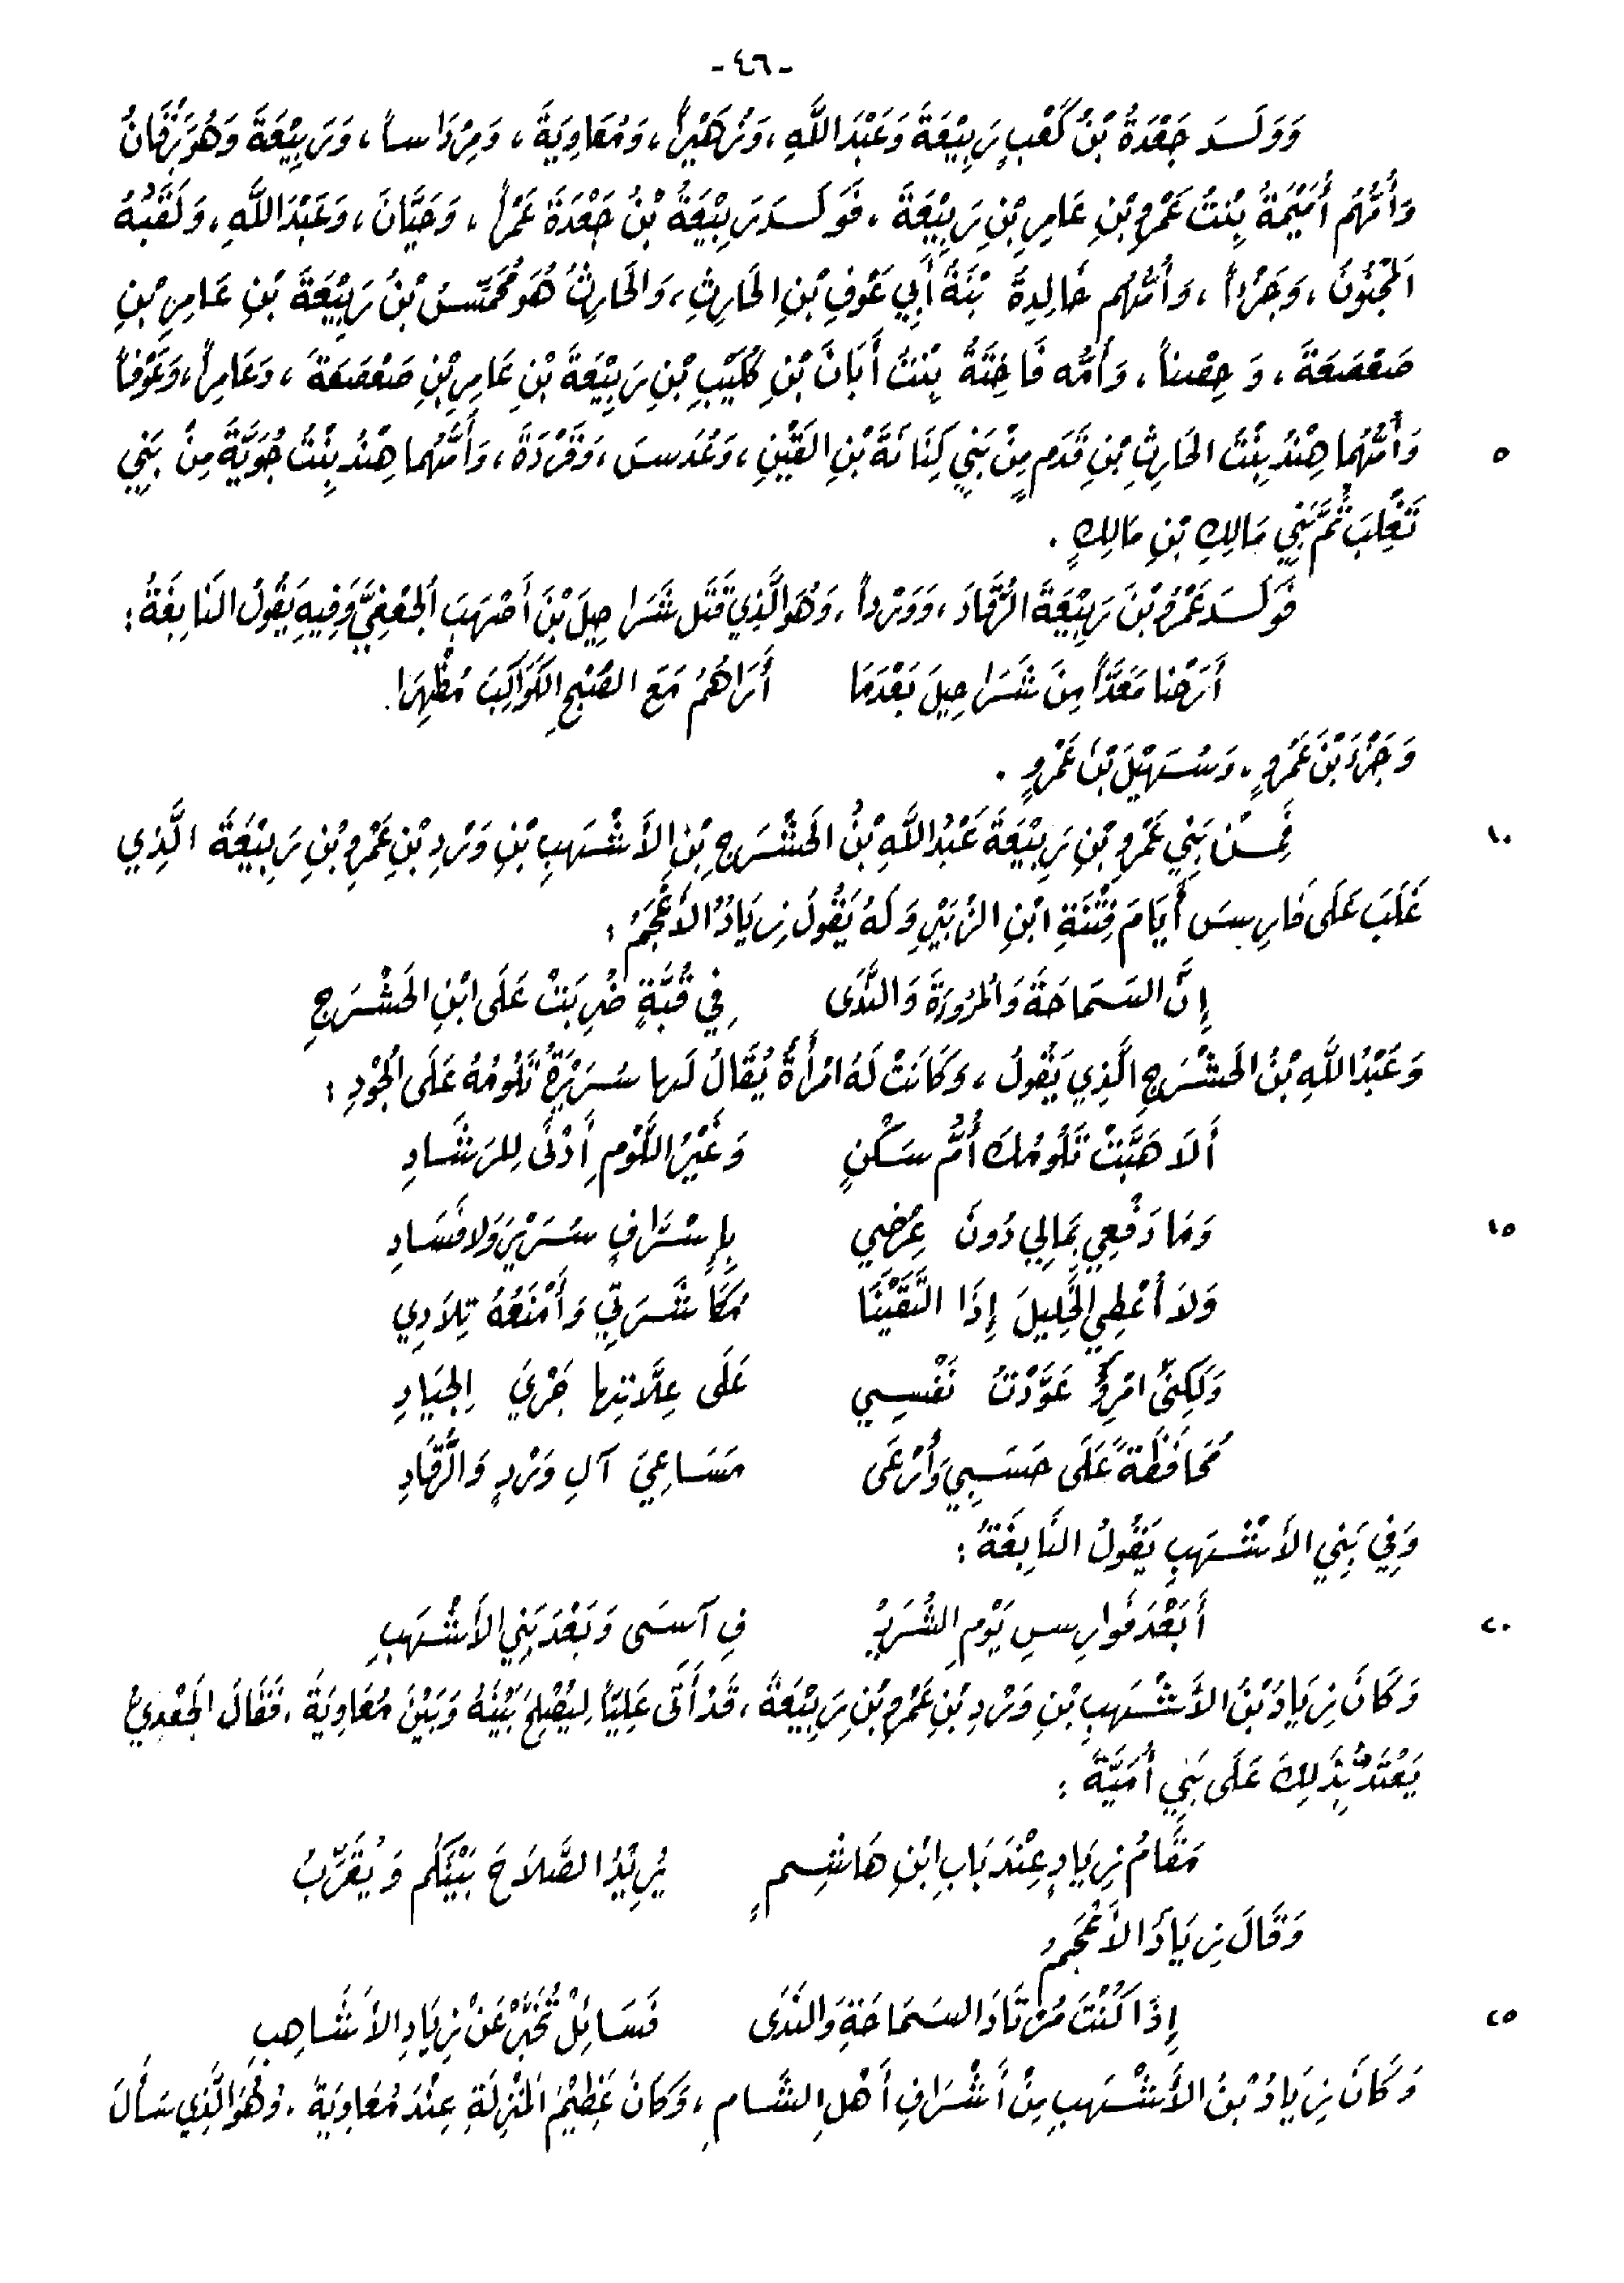 -٤٦-
وَوَلَدَ جَعْدَةُ بْنُ كَعْبٍ رَبِيْعَةَ وَعَبْدَاللَّهِ، وَزُهَيْراً، وَمُعَاوِيَةَ، وَمِرْدَاساً، وَرَبِيْعَةَ وَهُوَ بُرْقَانُ
وَأُمُّهُم أُمَيْمَةُ بِنْتُ عَمْرِو بْنِ عَامِرِ بْنِ رَبِيْعَةَ، فَوَلَدَ رَبِيْعَةُ بْنُ جَعْدَةَ عَمْراً، وَحَيَّانَ، وَعَبْدَاللَّهِ، وَلَقَبُهُ
المَجْنُونَ، وَجَزْءاً، وَأُمُّهُم خَالِدِةُ بْنَةُ أَبِي عَوْفِ بْنِ الحَارِثِ، وَالحَارِثُ هُوَ مُحَمَّسُ بْنُ رَبِيْعَةَ بْنِ عَامِرِ بْنِ
صَعْصَعَةَ، وَحِصْناً، وَأُمُّه فَاخِتَةُ بِنْتُ أَبَانَ بْنِ كُلَيْبِ بْنِ رَبِيْعَةَ بْنِ عَامِرِ بْنِ صَعْصَعَةَ، وَعَامِراً، وَعَوْفاً
وَأُمُّهُمَا هِنْدُ بِنْتُ الحَارِثِ بْنِ قَدَمٍ مِنْ بَنِي كِنَانَةَ بْنِ القَيْنِ، وَعُدَسَ، وَقُرْدَةَ، وَأُمُّهُما هِنْدُ بِنْتُ جُوَيَّةَ مِنْ بَنِي ٥
تَغْلِبَ ثُمَّ بَنِي مَالِكِ بْنِ مَالِكٍ.
فَوَلَدَ عَمْرُو بْنُ رَبِيْعَةَ الرُّقَادَ، وَوَرْداً، وَهُوَ الَّذِي قَتَلَ شَرَاحِيلَ بْنَ أَصْهَبَ الجُعْفِيَّ وَفِيهِ يَقُولُ النَابِغَةُ:
أَرَحْنا مَعَدَّاً مِنْ شَرَاحِيلَ بَعْدَمَا أَرَاهُمْ مَعَ الصُبْحِ الكَوَاكِبَ مُظْهِرَا.
وَجَزْءَ بْنَ عَمْرٍو، وَسُهَيْلَ بْنَ عَمْرٍو.
فَمِنْ بَنِي عَمْرِو بْنِ رَبِيْعَةَ عَبْدُاللَّهِ بْنُ الحَشْرَجِ بْنِ الأَشْهَبِ بْنِ وَرْدِ بْنِ عَمْرِو بْنِ رَبِيْعَةَ الَّذِي ١٠
غَلَبَ عَلَى فَارِسَ أَيَامَ فِتْنَةِ ابْنِ الزُبَيْرِ وَلَهُ يَقُولُ زِيَادُ الأَعْجَمُ:
إِنَّ السَمَاحَةَ وَالمُرُوءَةَ وَالنَّدَى فِي قُبَّةٍ ضُرِبَتْ عَلَى ابْنِ الحَشْرَجِ
وَعَبْدُاللَّهِ بْنُ الحَشْرَجِ الَّذِي يَقُولُ، وَكَانَتْ لَهُ امْرَأَةٌ يُقَالُ لَها سُرَيْرَةُ تَلُومُهُ عَلَى الجُوْدِ:
أَلاَ هَبَّتْ تَلُومُكَ أُمُّ سَكْنٍ وَغَيْرُ اللَّوْمِ أَدْنَى لِلرَشَادِ
وَمَا دَفْعِي بِمَالِي دُونَ عِرْضِي بِإِسْرَافٍ سُرَيْرَ وَلا فَسَادِ ١٥
وَلاَ أُعْطِي الخَلِيلَ إِذَا التَقَيْنَا مُكَاشَرَتِي وَأَمْنَعُهُ تِلاَدِي
وَلَكِنِّي امْرِؤٌ عَوَّدْتُ نَفْسِي عَلَى عِلَّاتِها جَرْيَ الجِيَادِ
مُحَافَظَةً عَلَى حَسَبِي وَأَرْعَى مَسَاعِيَ آلِ وَرْدٍ وَالرُّقَادِ
وَفِي بَنِي الأَشْهَبِ يَقُولُ النَابِغَةُ:
أَبَعْدَ فَوَارِسِ يَوْمِ الشُرَيْـ ـفِ آسَى وَبَعْدَ بَنِي الأَشْهَبِ ٢٠
وَكَانَ زِيَادُ بْنُ الأَشْهَبِ بْنِ وَرْدِ بْنِ عَمْرِو بْنِ رَبِيْعَةَ، قَدْ أَتَى عَلِيّاً لِيُصْلِحَ بَيْنَهُ وَبَيْنَ مُعَاوِيَةَ، فَقَالَ الجَعْدِيُّ
يَعْتَدُّ بِذَلِكَ عَلَى بَنِي أُمَيَّةَ:
مَقَامُ زِيَادٍ عِنْدَ بَابِ ابْنِ هَاشِمٍ يُرِيْدُ الصَّلاَحَ بَيْنَكُم وَيُقَرِّبُ
وَقَالَ زِيَادُ الأَعْجَمُ
إِذَا كُنْتَ مُرْتَادَ السَمَاحَةِ وَالنَدَى فَسَائِلْ تُخَبَّرْ عَنْ زِيَادِ الأَشَاهِبِ ٢٥
وَكَانَ زِيَادُ بْنُ الأَشْهَبِ مِنْ أَشْرَافِ أَهْلِ الشَامِ، وَكَانَ عَظِيْمُ المَنْزِلَةِ عِنْدَ مُعَاوِيَةَ، وَهُوَ الَّذِي سَأَلَ